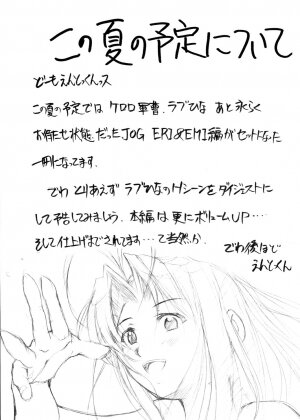 この夏の予定について
どーもえんとっくんっス
この夏の予定では ケロロ軍曹、ラブひな あと永らく
お待たせ状態だったJOG ERI&EMI編がセットになった
一冊になってます。
でわ とりあえず ラブひなのHシーンをダイジェストに
して予告してみましょう。本編は更にボリュームUP…
そして仕上げまでされてます…て当然か
でわ後ほど
えんとっくん